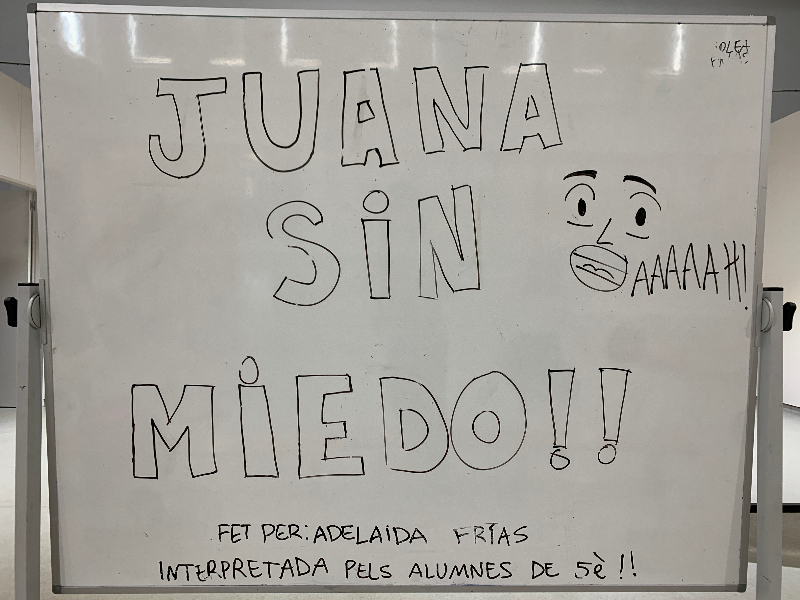 JUANA
SiN
AAAAAH!
MiEDO!!
FET PER: ADELAiDA FRÍAS
INTERPRETADA PELS ALUMNES DE 5è !!